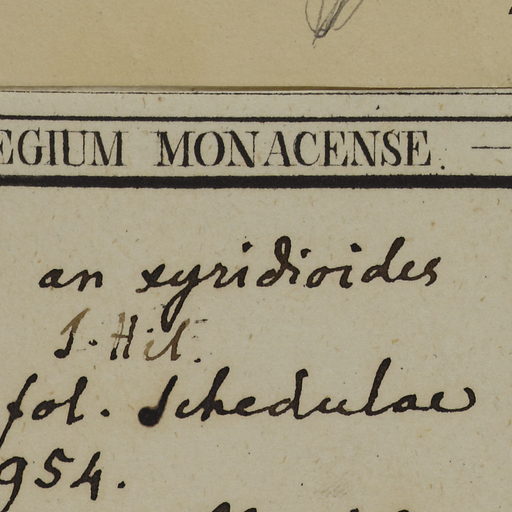 EGIUM MONACENSE.
an xyridioides
fol. Schedulae
954.